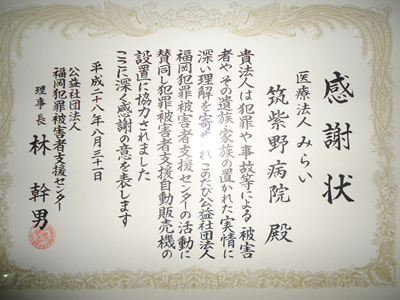 感謝状
医療法人みらい
筑紫野病院 殿
貴法人は犯罪や事故等による被害
者やその遺族・家族の置かれた実情に
深い理解を寄せられこのたび公益社団法人
福岡犯罪被害者支援センターの活動に
賛同し犯罪被害者支援自動販売機の
設置に協力されました
ここに深く感謝の意を表します
平成二十八年八月三十一日
公益社団法人
福岡犯罪被害者支援センター
理事長 林 幹男